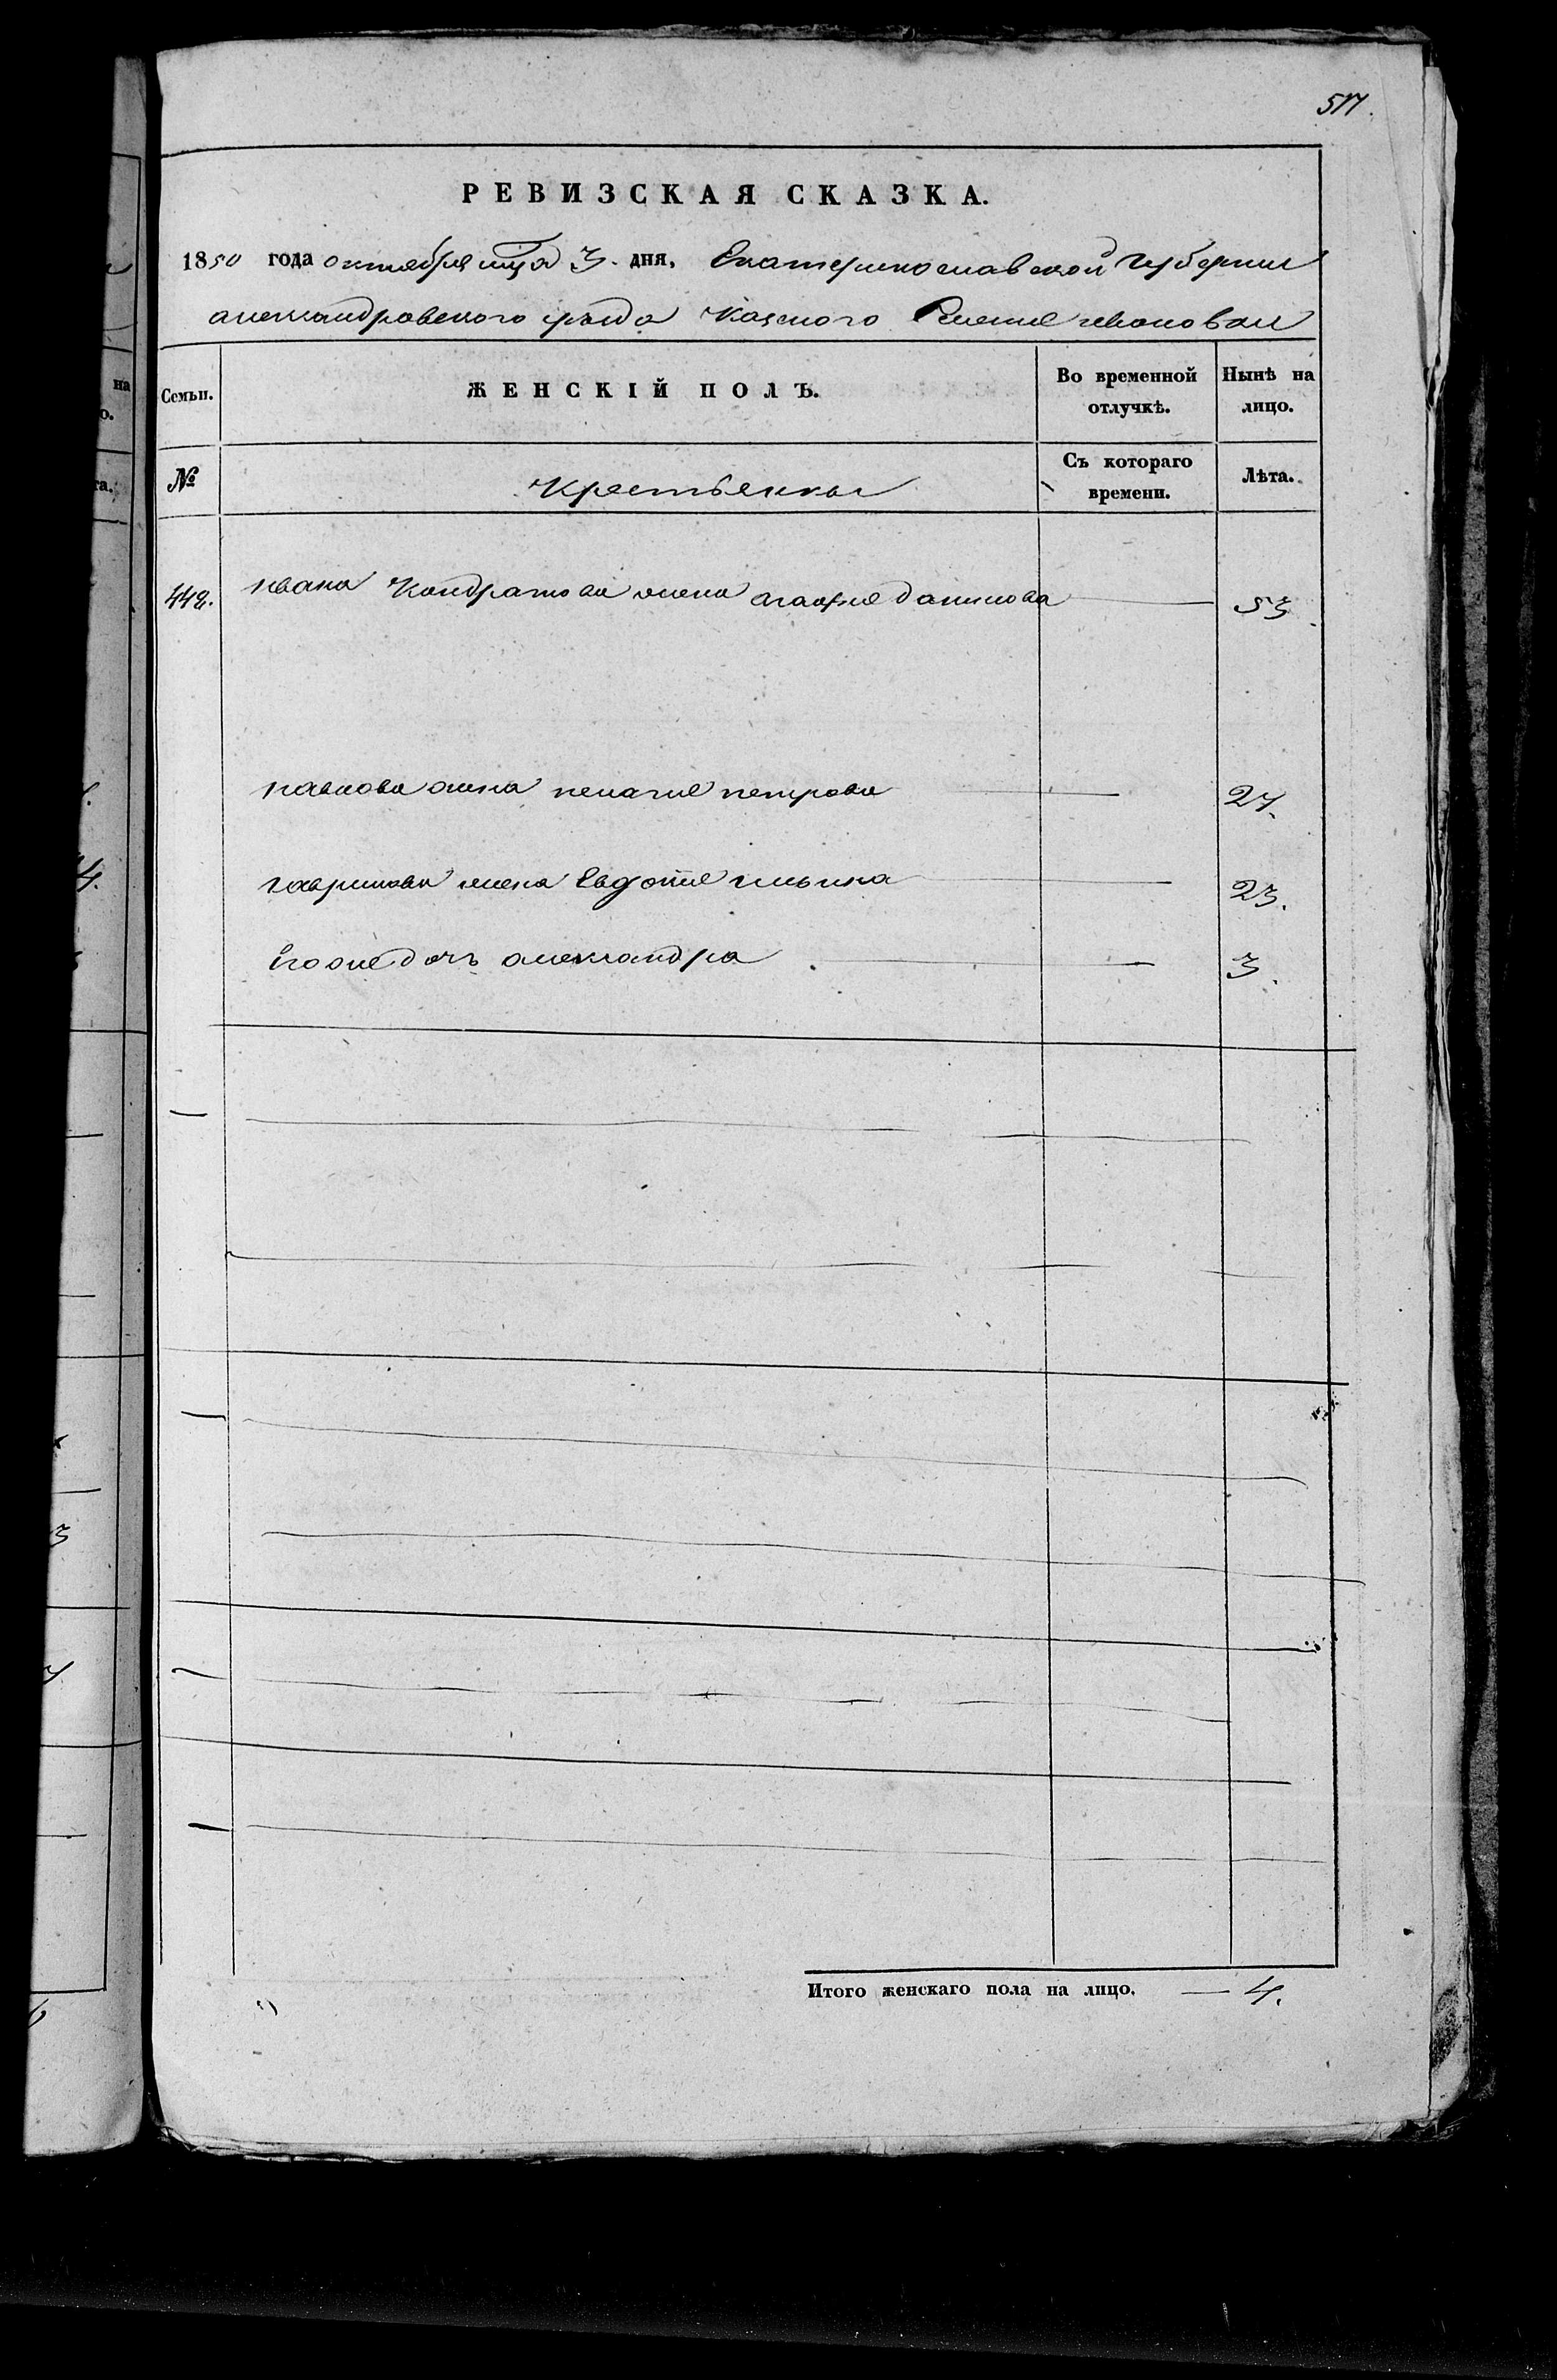 517.
РЕВИЗСКАЯ СКАЗКА.
1850 года октября мца 3. дня, Екатеринославской Губернии
александровского уезда Казеного Селение
Семьи. ЖЕНСКІЙ ПОЛЪ. Во временной отлучкѣ. Нынѣ на лицо.
№ Крестьянки Съ котораго времени. Лѣта.
442. Ивана Кондратова жена агафия данилова 53
павлова жена пелагия петрова 27.
гаврилова жена Евдотия ильина 23.
Его дочь александра 3.
Итого женскаго пола на лицо. — 4.